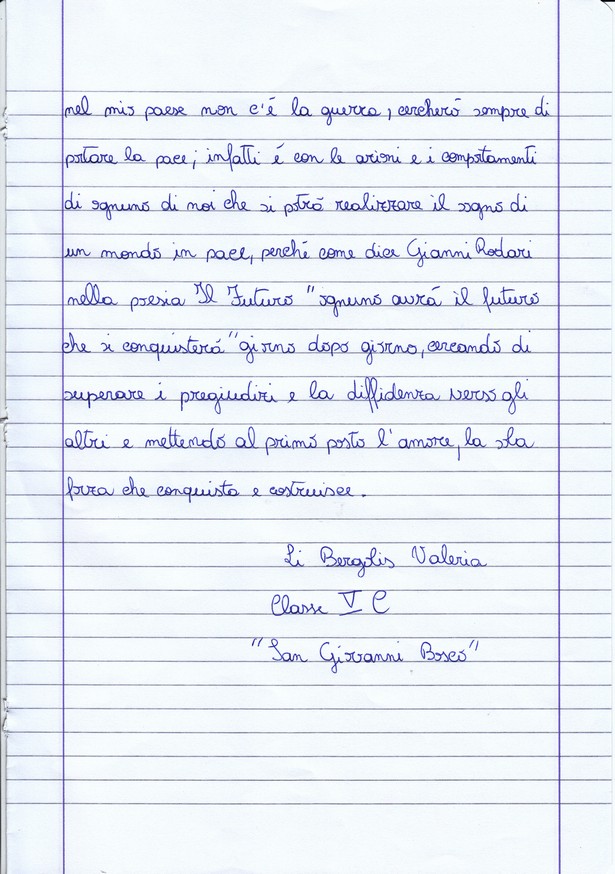 nel mio paese non c'é la guerra, cercheró sempre di
portare la pace; infatti é con le azioni e i comportamenti
di ognuno di noi che si potrá realizzare il sogno di
un mondo in pace, perché come dice Gianni Rodari
nella poesia Il Futuro "ognuno avrá il futuro
che si conquisterá" giorno dopo giorno, cercando di
superare i pregiudizi e la diffidenza verso gli
altri e mettendo al primo posto l'amore, la sola
forza che conquista e costruisce.
Li Bergolis Valeria
Classe V C
"San Giovanni Bosco"